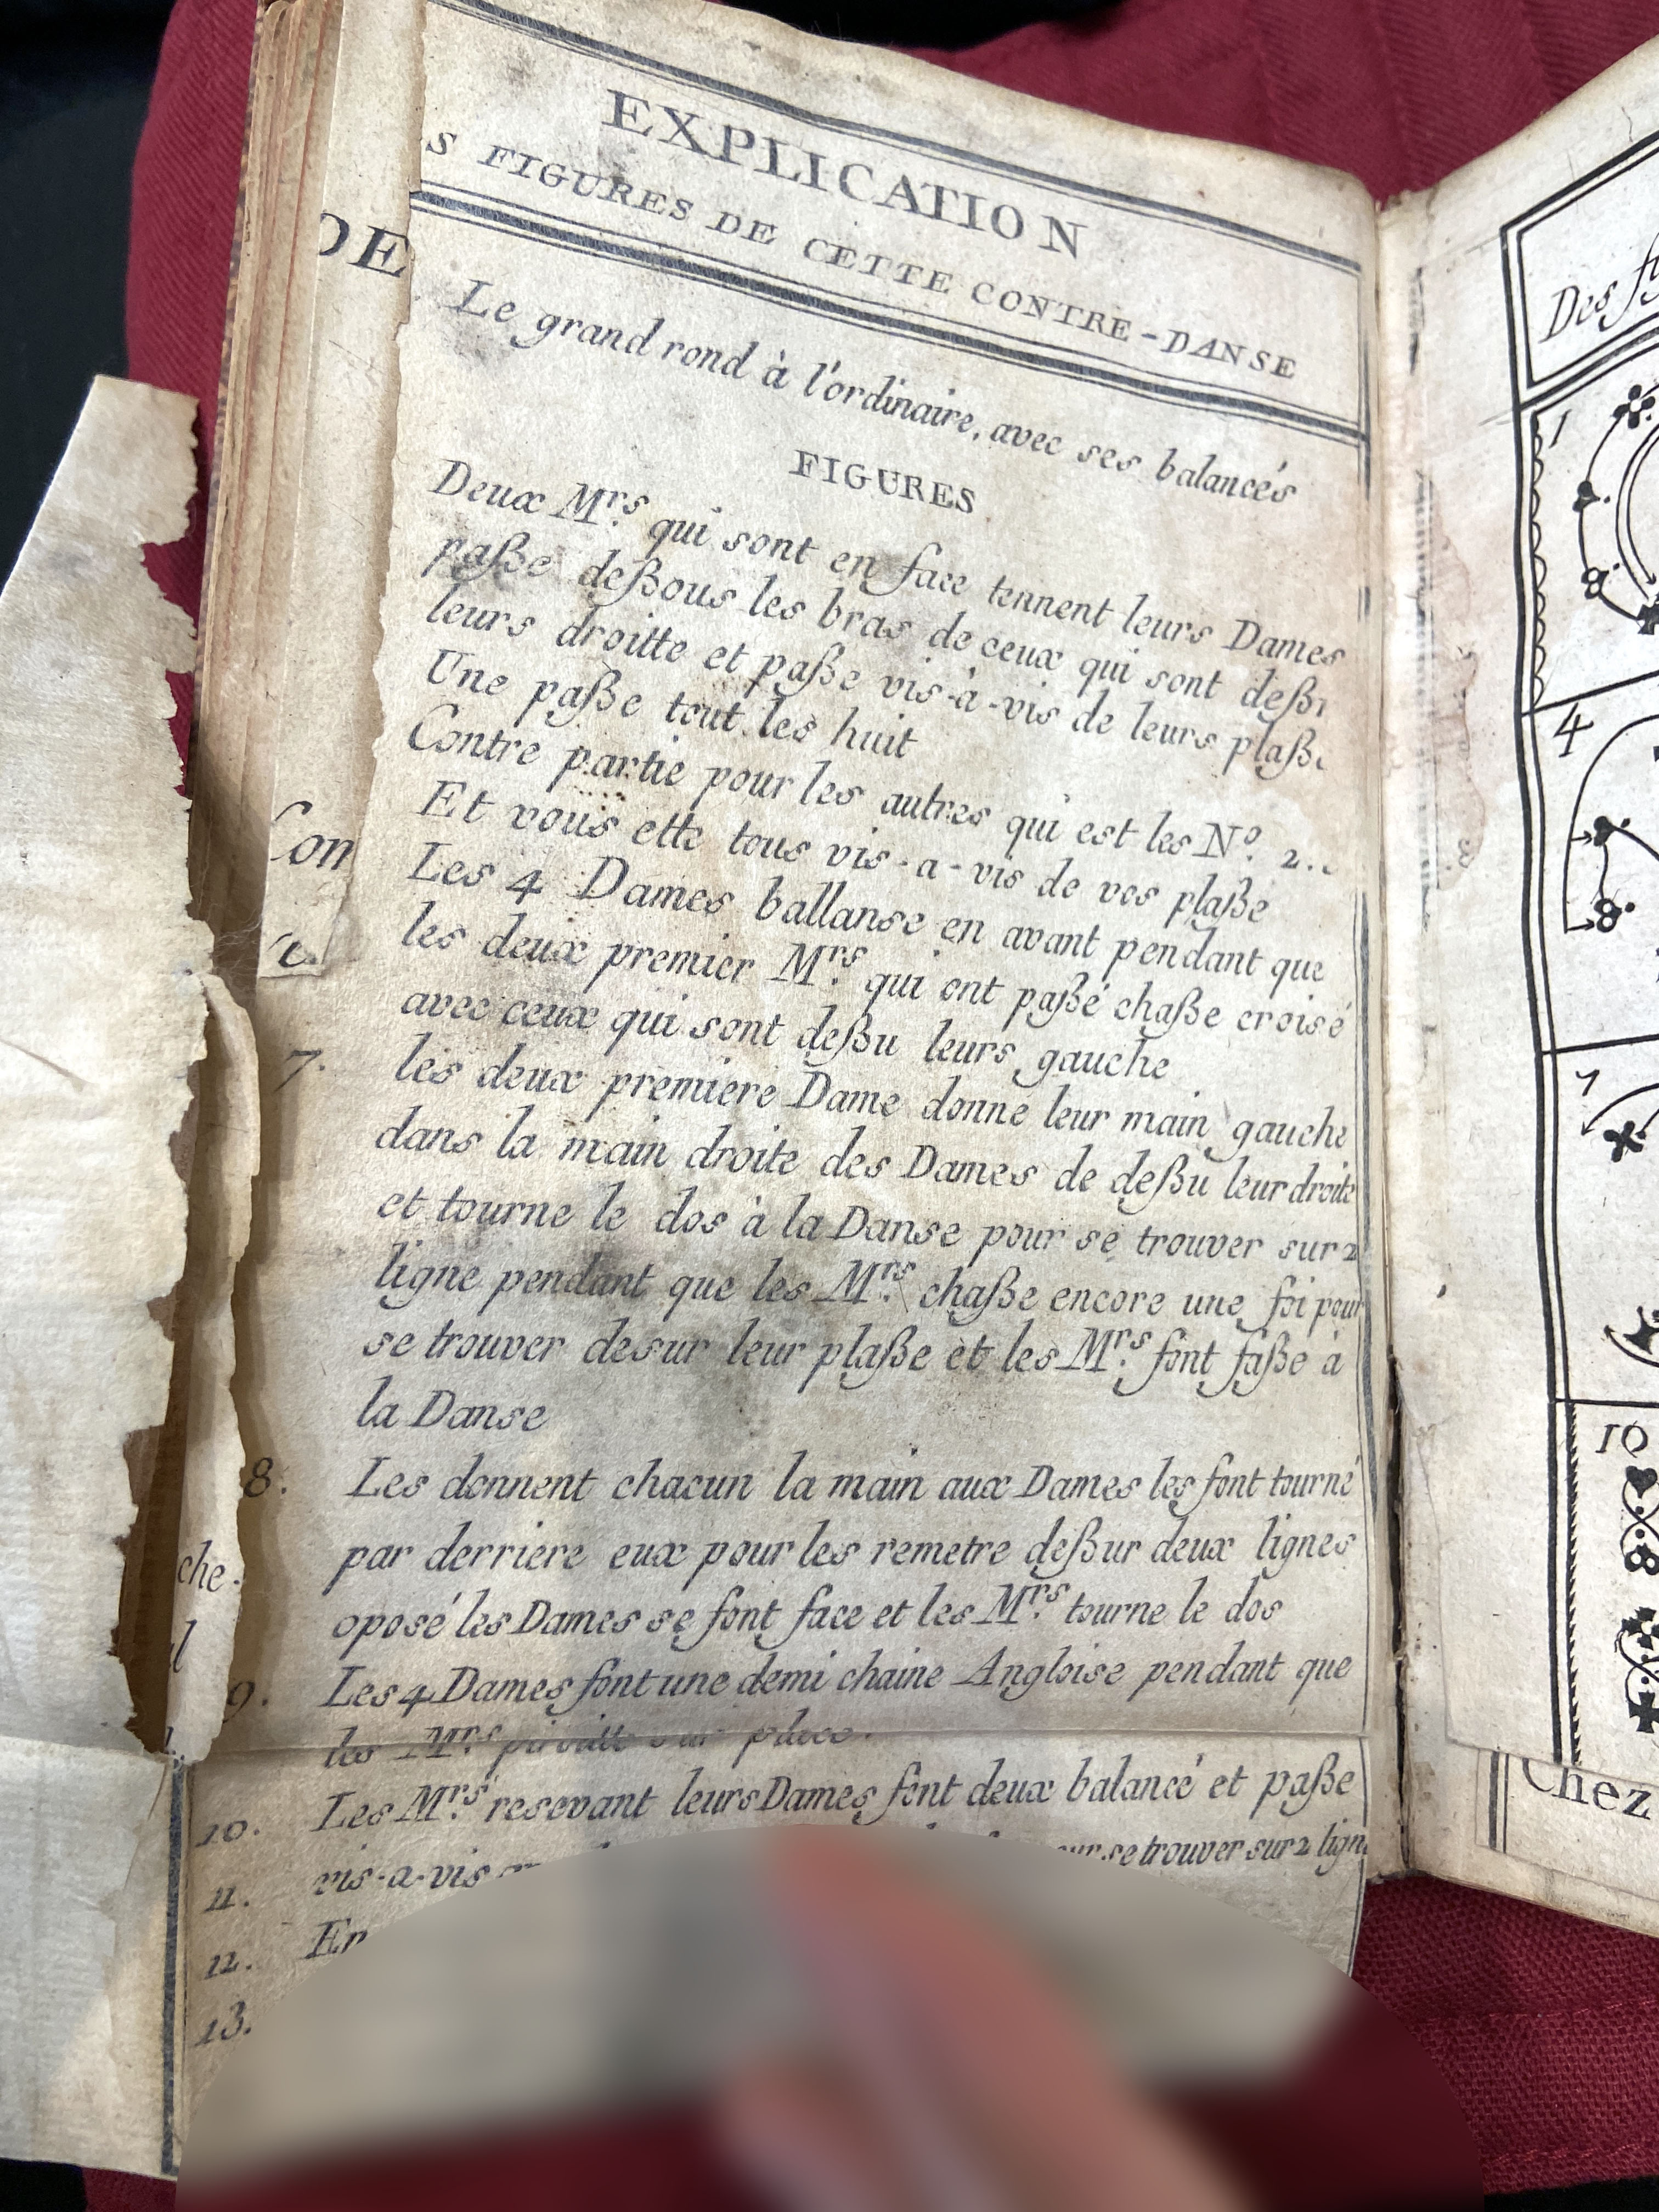 EXPLICATION
S FIGURES DE CETTE CONTRE-DANSE
DE
Le grand rond à l'ordinaire, avec ses balancés
FIGURES
Deux Mrs. qui sont en face tennent leurs Dames
paße deßous les bras de ceux qui sont deßu
leurs droitte et paße vis-à-vis de leurs plaße
Une paße tout les huit
Contre partie pour les autres qui est les No. 2.
Et vous ette tous vis-a-vis de vos plaße
Con
Les 4 Dames ballanse en avant pendant que
les deux premier Mrs. qui ont paßé chaße croisé
avec ceux qui sont deßu leurs gauche
7. les deux premiere Dame donne leur main gauche
dans la main droite des Dames de deßu leur droite
et tourne le dos à la Danse pour se trouver sur 2
ligne pendant que les Mrs. chaße encore une foi pour
se trouver desur leur plaße et les Mrs. font faße a
la Danse
8. Les donnent chacun la main aux Dames les font tourné
par derriere eux pour les remetre deßur deux lignes
che.
oposé les Dames se font face et les Mrs. tourne le dos
l
9. Les 4 Dames font une demi chaine Angloise pendant que
les Mrs. pirouitte sur place.
10. Les Mrs. resevant leurs Dames font deux balancé et paße
11. vis-a-vis se trouver sur 2 lign
12.
13.
Des
1
8
4
8
7
10
8
Chez